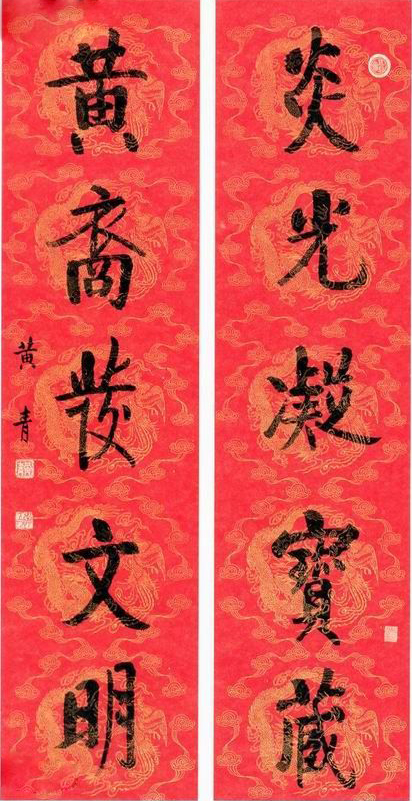 炎光凝寶藏
黃裔發文明
黃青